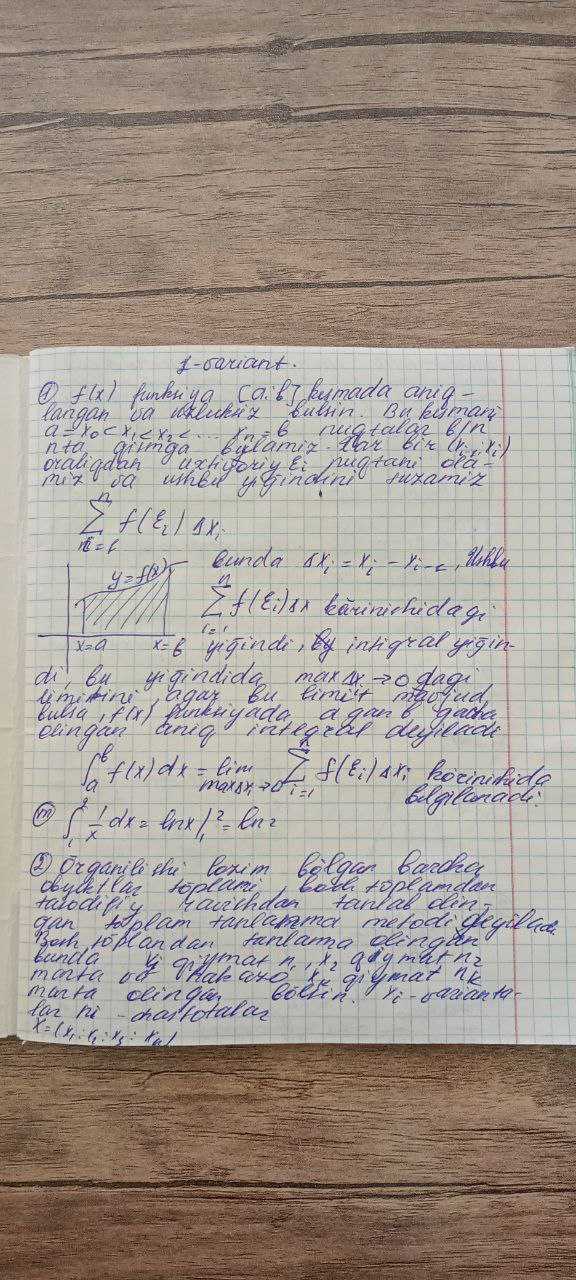 1-variant.
① f(x) funksiya [a:b] kesmada aniq-
langan va uzluksiz bulsin. Bu kesmani
a=x₀<x₁<x₂<... xₙ=b nuqtalar b/n
n ta qismga bo'lamiz. Har bir (xᵢ₋₁; xᵢ)
oraliqdan ixtiyoriy Ɛᵢ nuqtani ola-
miz va ushbu yig'indini tuzamiz
n
∑ f(Ɛᵢ) Δxᵢ
i=1
bunda Δxᵢ = xᵢ - xᵢ₋₁, Ushbu
y=f(x)
n
∑ f(Ɛᵢ)Δx kõrinishidagi
i=1
x=a x=b yiğindi, integral yiğin-
di, bu yiğindida maxΔx→0 dagi
limitini, agar bu limit mavjud
bulsa, f(x) funksiyada a gan b gacha
olingan aniq integral deyiladi
∫ₐᵇ f(x)dx = lim ∑ f(Ɛᵢ)Δxᵢ kõrinishida
maxΔxᵢ→0 i=1 belgilanadi.
ⓜ ∫₁² 1/x dx = lnx|₁² = ln2
② Õrganilishi lozim bõlgan barcha
obyektlar toplami, bosh toplamdan
tasodifiy ravishdan tanlab olin-
gan toplam tanlanma metodi deyiladi.
Bosh toplandan tanlanma olingan
bunda x₁ qiymat n₁, x₂ qiymat n₂
marta va hakazo xₖ qiymat nₖ
marta olingan bõlsin. xᵢ-varianta-
lar nᵢ -chastotalar